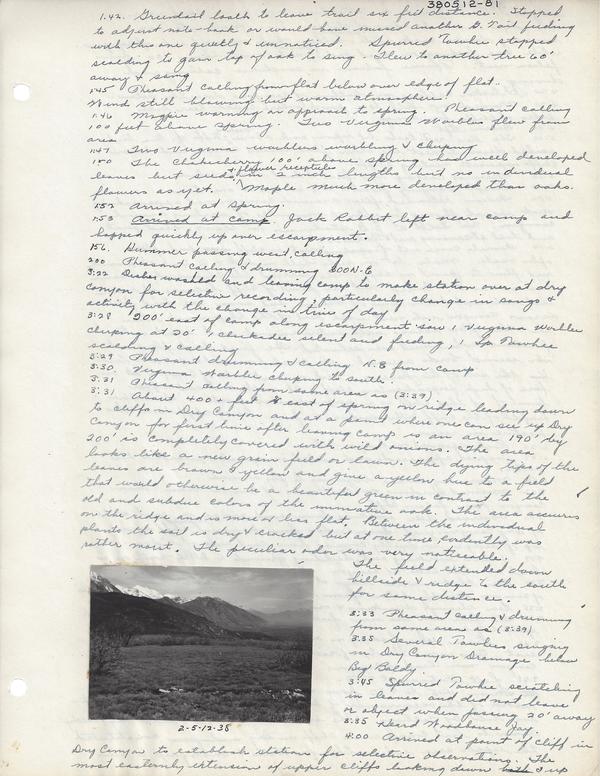 380512-81
1:42. Greentail loath to leave trail six feet distance. Stopped
to adjust note book or would have missed another G. Tail feeding
with this one quietly & unnoticed. Spurred Towhee stopped
scolding to gain top of oak to sing. Flew to another tree 60'
away & sang
1:45 Pheasant calling from flat below over edge of flat.
Wind still blowing but warm atmosphere
1:46 Magpie warning on approach to spring. Pheasant calling
100 feet above spring. Two Virginia Warbler flew from
area
1:47 Two Virginia warblers warbling & chirping
1:50 The Chokecherry 100' above spring has well developed
leaves but seeds & flower receptacle in 2 inch lengths but no individual
flowers as yet. Maple much more developed than oaks.
1:52 Arrived at spring.
1:53 Arrived at camp. Jack Rabbit left near camp and
hopped quickly up over escarpment.
1:56. Hummer passing west, calling
2:00 Pheasant calling & drumming 200 N-E
3:22 Dishes washed and leaving camp to make station over at dry
canyon for selective recording, particularly change in songs &
activity with the change in time of day
3:28 200' east of camp along escarpment saw 1 Virginia Warbler
chirping at 20', chickadee silent and feeding, 1 Sp Towhee
scolding & calling
3:29 Pheasant drumming & calling N.E from camp
3:30. Virginia Warbler chirping to south.
3:31 Pheasant calling from same area as (3:29).
3:31 About 400 + feet east of spring on ridge leading down
to cliffs in Dry Canyon and at a point where one can see up Dry
Canyon for first time after leaving camp is an area 190' by
200' is completely covered with wild onions. The area
looks like a new grain field or lawn. The dying tips of the
leaves are brown & yellow and give a yellow hue to a field
that would otherwise be a beautiful green in contrast to the
old and subdue colors of the immature oak. The area occurs
on the ridge and is more or less flat. Between the individual
plants the soil is dry & cracked but at one time evidently was
rather moist. The peculiar odor was very noticeable.
The field extended down
hillside & ridge to the south
for some distance.
3:33 Pheasant calling & drumming
from same area as (3:29)
3:35 Several Towhees singing
in Dry Canyon Drainage below
Big Baldy
3:45 Spurred Towhee scratching
in leaves and did not leave
or object when passing 20' away
3:35 Heard Woodhouse Jay.
4:00 Arrived at point of cliff in
2-5-12-38
Dry Canyon to establish station for selective observations. The
most easternly extension of upper cliffs looking down up